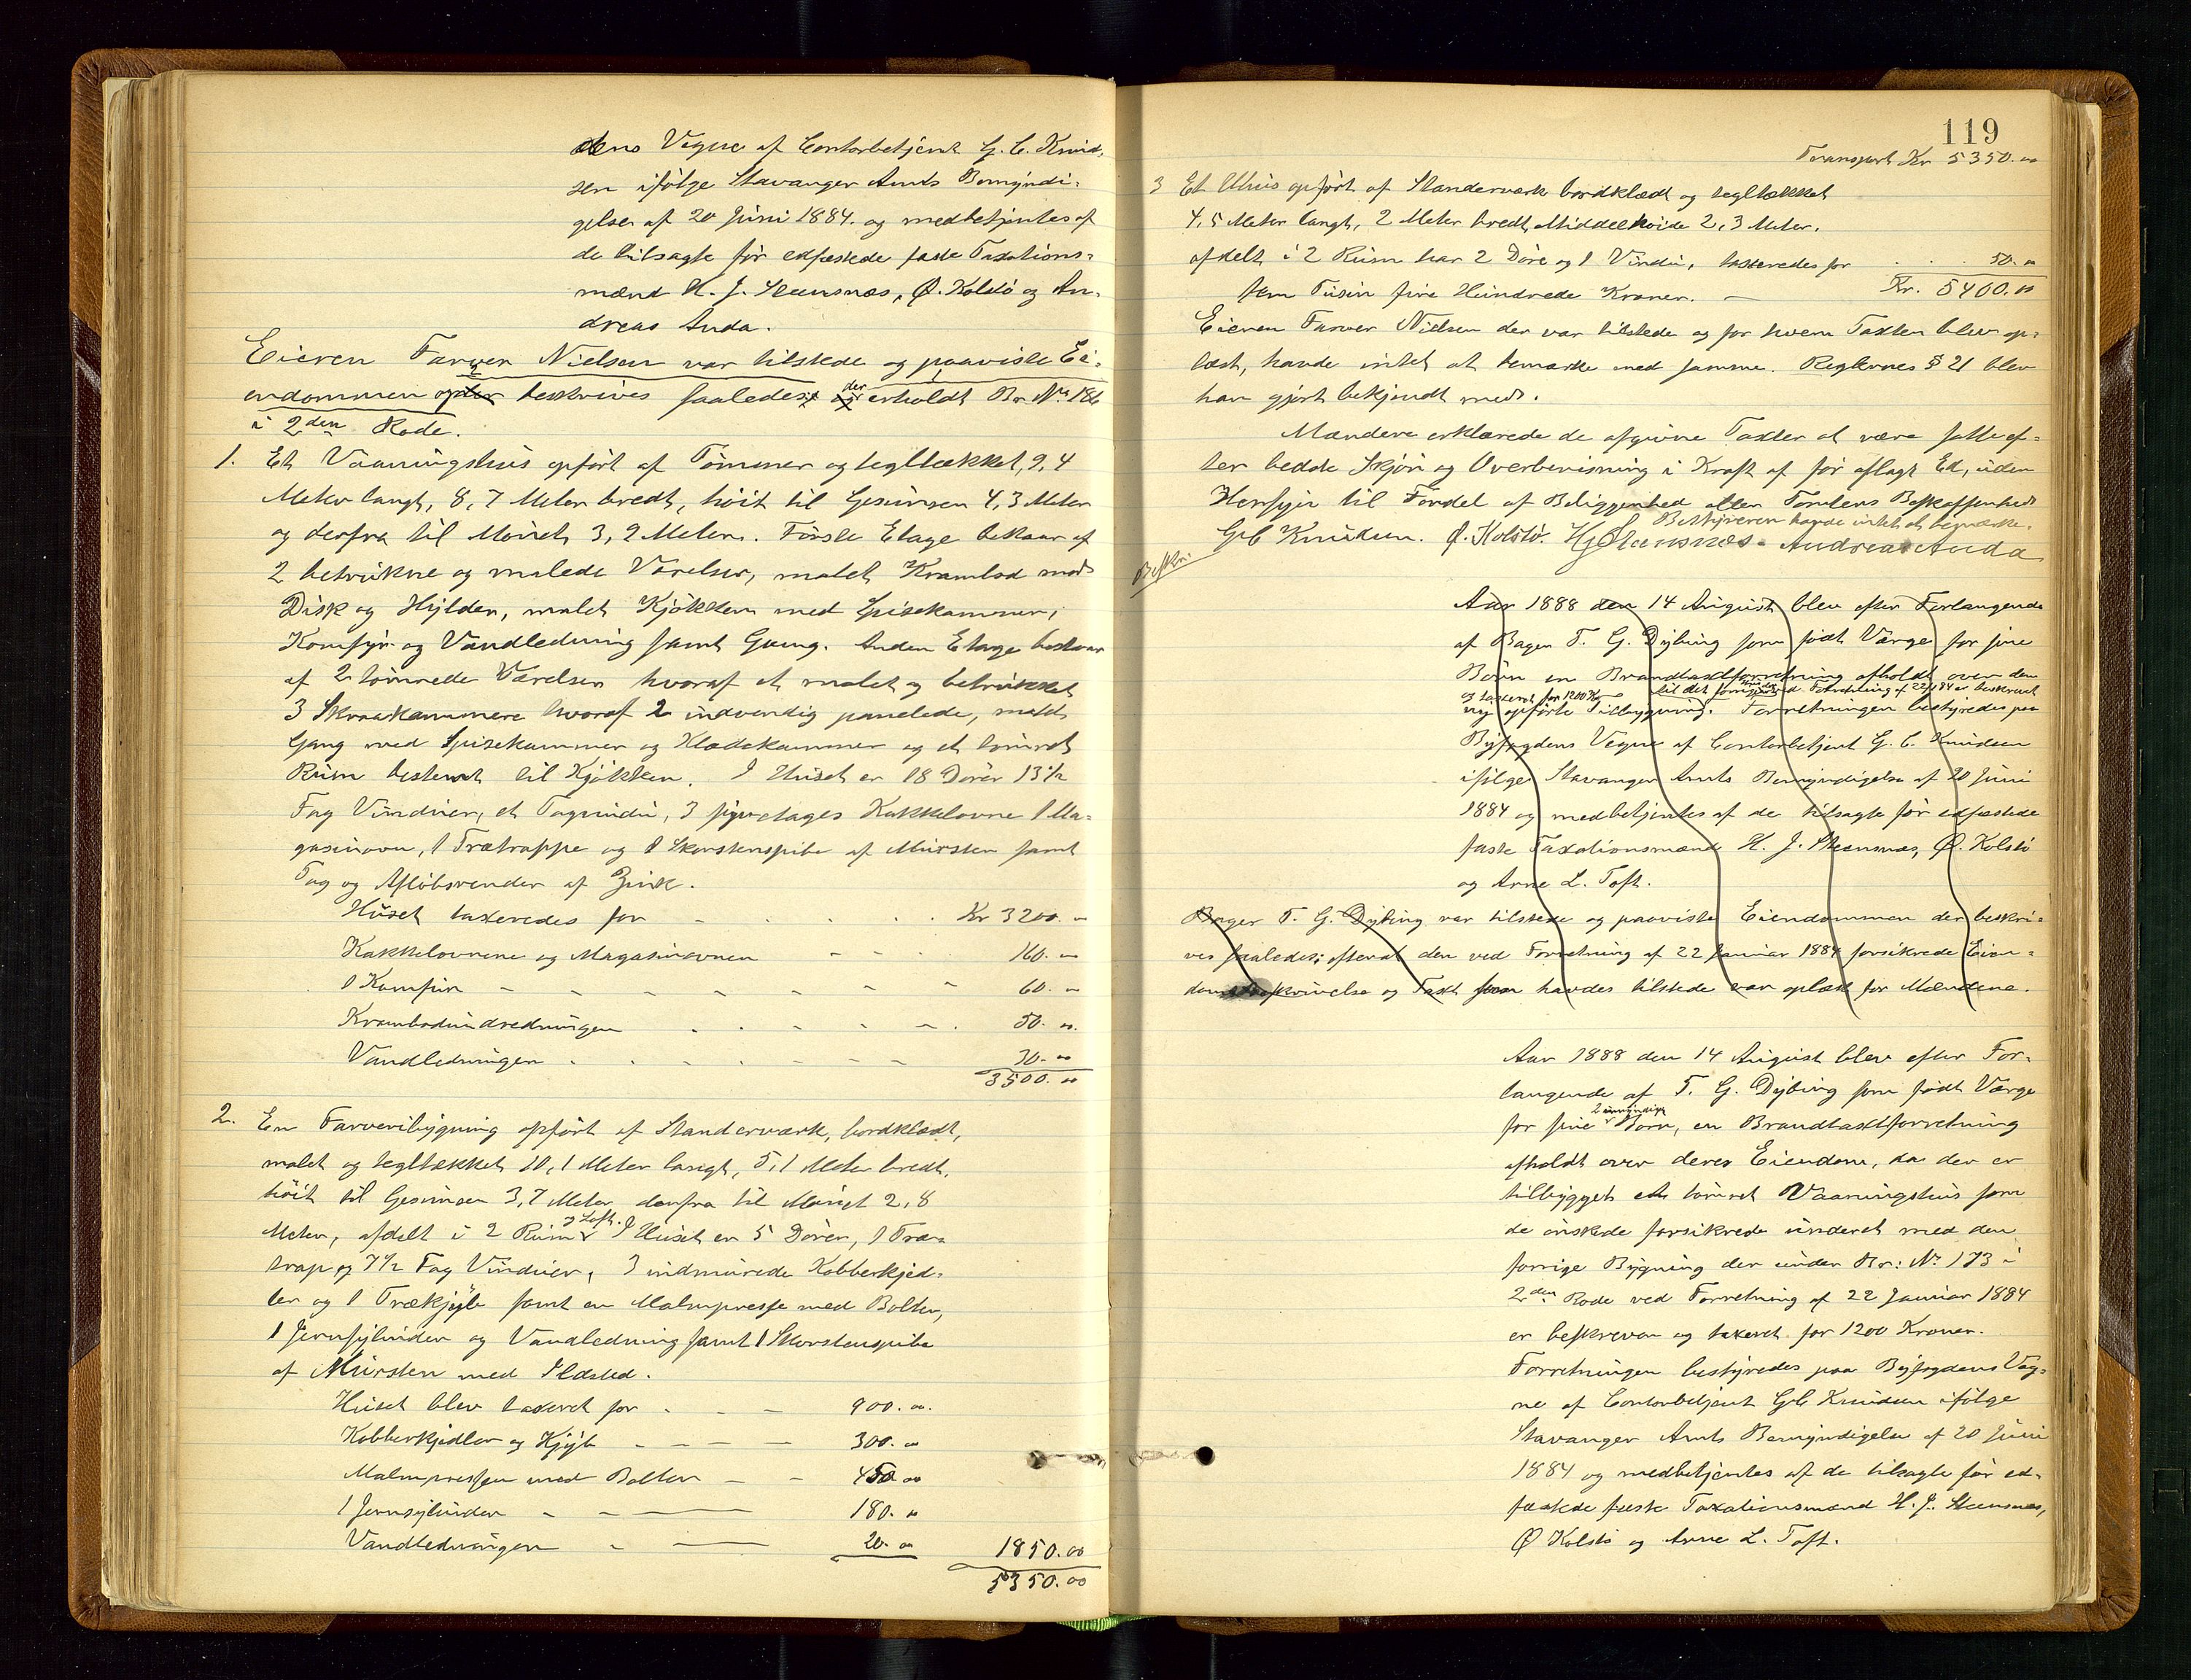 dens Vegne af Contorbetjent G. C. Knud-
sen ifölge Stavanger Amts Bemyndi-
gelse af 20 Juni 1884. og medbetjentes af
de tilsagte för edfæstede faste Taxations-
mænd H. J. Steensnæs, Ø. Kolstö og An-
dreas Anda.
Eieren Farver Nielsen var tilstede og paaviste Ei-
endommen der beskrives saaledes: der erholdt Br. No 186
i 2den Rode.
1. Et Vaaningshus opfört af Tömmer og tegltækket, 9,4
Meter langt, 8,7 Meter bredt, höit til Gesimsen 4,3 Meter
og derfra til Mönet 3,9 Meter. Förste Etage bestaar af
2 betrukne og malede Værelser, malet Krambod med
Disk og Hylder, malet Kjökken med Spisekammer,
Komfyr og Vandledning samt Gang. Anden Etage bestaar
af 2 tömrede Værelser hvoraf et malet og betrukket
3 Skraakammere hvoraf 2 indvendig panelede, malet
Gang med Spisekammer og Klædekammer og et tömret
Rum bestemt til Kjökken. I Huset er 18 Dörer 13 1/2
Fag Vinduer, et Tagvindu, 3 Kakkelovne 1 Ma-
gasinovn, 1 Trætrappe og 1 Skorstenspibe af Mursten samt
Tag og Aflöbsrender af Zink.
Huset taxeredes for - . . . . Kr 3200. "
Kakkelovnene og Magasinovnen - - - 160. "
1 Komfur - - - - - - - 60. "
Krambodindredningen . . - - - . 50. "
Vandledningen . . . - - - - 30. "
3500. "
2. En Farveribygning opfört af Standerværk, bordklædt,
malet og tegltækket 10,1 Meter langt, 5,1 Meter bredt,
höit til Gesimsen 3,7 Meter derfra til Mönet 2,8
Meter, afdelt i 2 Rum og Loft. I Huset er 5 Dörer, 1 Træ-
trap og 7 1/2 Fag Vinduer, 3 indmurede Kobberkjed-
ler og 1 Trækjyb samt en Malmpresse med Bolter,
1 Jerncylinder og Vandledning samt 1 Skorstenspibe
af Mursten med Ildsted.
Huset blev taxeret for . - - 900. "
Kobberkjedler og Kjyb - - - - 300. "
Malmpressen med Bolter - - 450 "
1 Jerncylinder - - — 180. "
Vandledningen - — 20. " 1850.00
5350.00
119
Transport Kr 5350. "
3 Et Uhus opfört af Standerværk bordklædt og tegltækket
4,5 Meter langt, 2 Meter bredt, Middelhöide 2,3 Meter.
afdelt i 2 Rum har 2 Döre og 1 Vindu, taxeredes for . . . 50. "
fem Tusin fire Hundrede Kroner. — Kr. 5400. "
Eieren Farver Nielsen der var tilstede og for hvem Taxten blev op-
læst, havde intet at bemærke med samme. Reglernes § 21 blev
han gjort bekjendt med.
Mændene erklærede de afgivne Taxter at være satte ef-
ter bedste Skjön og Overbevisning i Kraft af för aflagt Ed, uden
Hensyn til Fordel af Beliggenhed eller Tomtens Beskaffenhed
Bestyreren havde intet at bemærke.
GC Knudsen. Ø. Kolstö. HJSteensnæs - Andreas Anda
Beskr:
Aar 1888 den 14 August blev efter Forlangende
af Bager T. G. Dybing som födt Værge for sine
Börn en Brandtaxtforretning afholdt over den
og taxeret for 1200 Kr til det Forretning af 22/1 84 er beskrevet
ny opförte Tilbygning. Forretningen bestyredes paa
Byfogdens Vegne af Contorbetjent G. C. Knudsen
ifölge Stavanger Amts Bemyndigelse af 20 Juni
1884 og medbetjentes af de tilsagte för edfæstede
faste Taxationsmænd H. J. Steensnæs, Ø. Kolstö
og Arne L. Toft.
Bager T. G. Dybing var tilstede og paaviste Eiendommen der beskri-
ves saaledes: efterat den ved Forretning af 22 Januar 1884 forsikrede Eien-
doms Beskrivelse og Taxt havdes tilstede var oplæst for Mændene.
Aar 1888 den 14 August blev efter For-
langende af T. G. Dybing som födt Værge
for sine 2 umyndige Börn, en Brandtaxtforretning
afholdt over deres Eiendom, da der er
tilbygget et tömret Vaaningshus som
de önskede forsikrede under et med den
forrige Bygning der under Br: No 173 i
2den Rode ved Forretning af 22 Januar 1884
er beskreven og taxeret for 1200 Kroner.
Forretningen bestyredes paa Byfogdens Veg-
ne af Contorbetjent GC Knudsen ifölge
Stavanger Amts Bemyndigelse af 20 Juni
1884 og medbetjentes af de tilsagte för ed-
fæstede faste Taxationsmænd H. J. Steensnæs,
Ø Kolstö og Arne L. Toft.